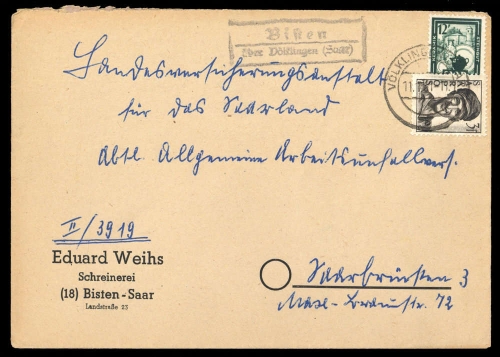 Bisten
über Völklingen (Saar)
VÖLKLINGEN
11.
12
3
Landesversicherungsanstalt
für das Saarland
Abtl. Allgemeine Arbeitsunfallvers.
II/3919
Eduard Weihs
Schreinerei
(18) Bisten-Saar
Landstraße 23
Saarbrücken 3
Max-Braunstr. 72